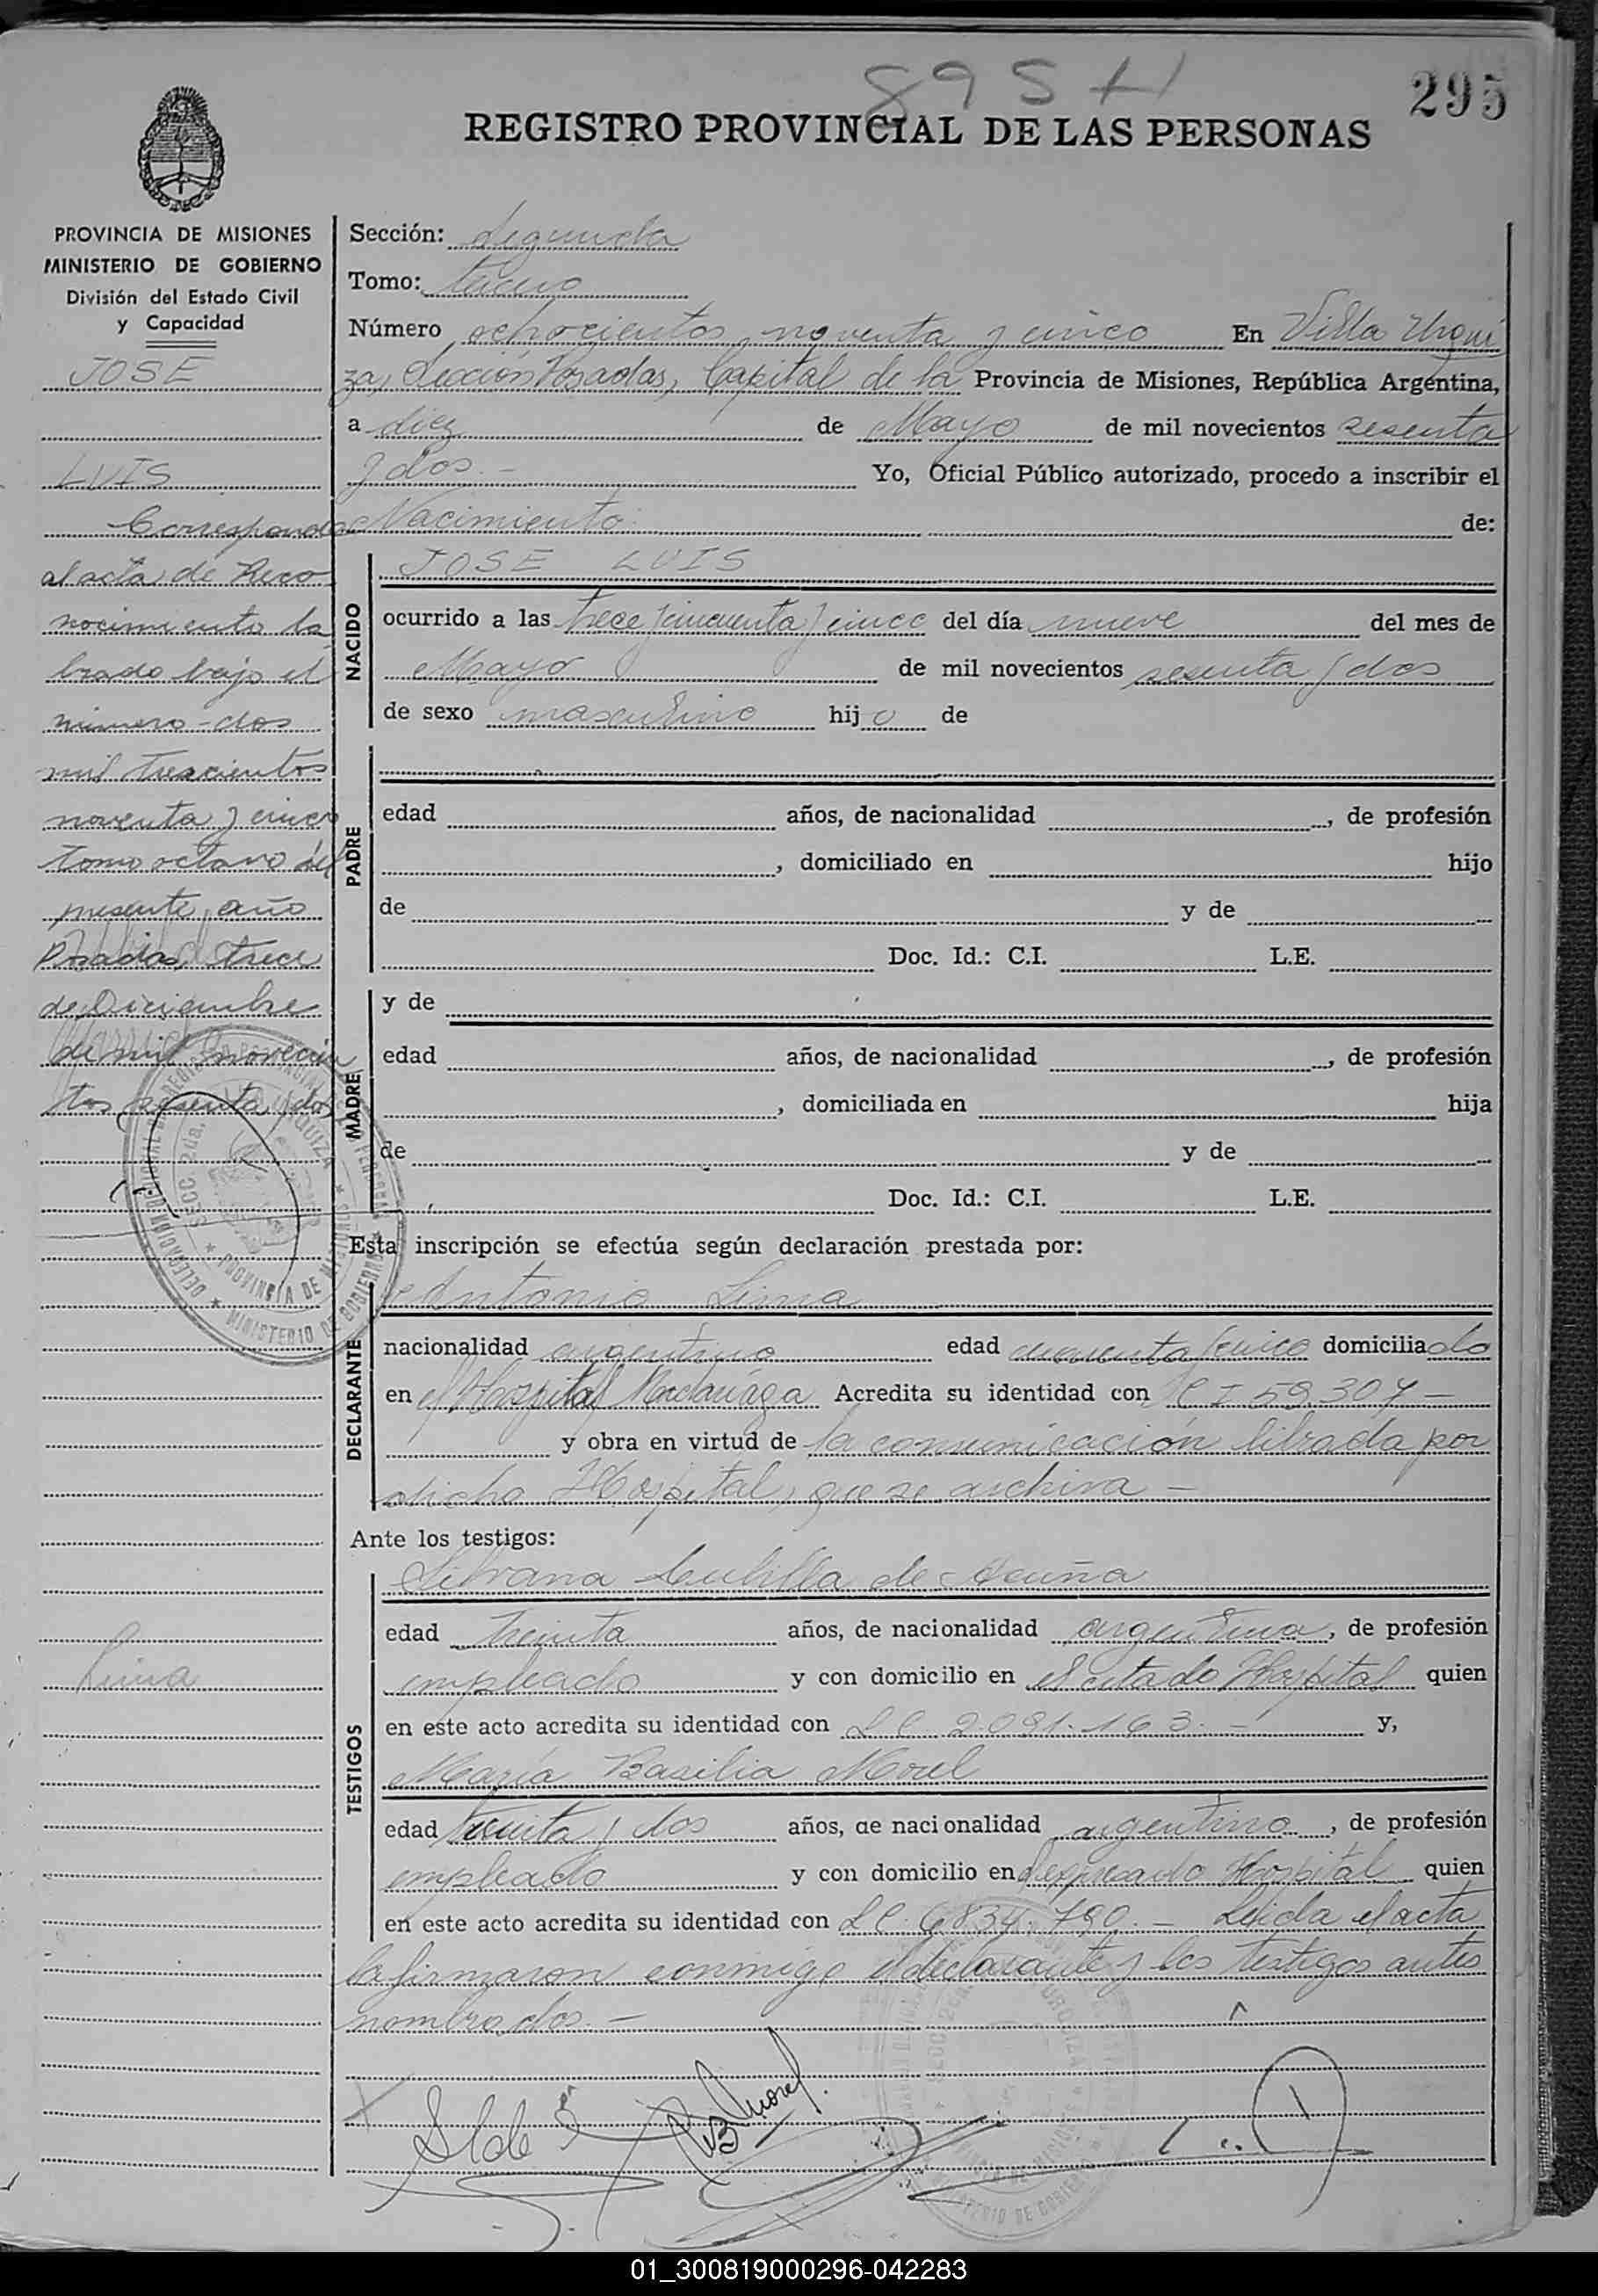 895 H
295
REGISTRO PROVINCIAL DE LAS PERSONAS
PROVINCIA DE MISIONES
MINISTERIO DE GOBIERNO
División del Estado Civil
y Capacidad
JOSE
LUIS
Corresponde
al acta de Reco
nocimiento la
brado bajo el
número - dos
mil trescientos
noventa y cinco
tomo octavo del
presente año
Posadas, trece
de Diciembre
de mil novecien
tos sesenta y dos
Lima
Sección: Segunda
Tomo: tercero
Número ochocientos noventa y cinco En Villa Urqui
za, Sección Posadas, Capital de la Provincia de Misiones, República Argentina,
a diez de Mayo de mil novecientos sesenta
y dos.- Yo, Oficial Público autorizado, procedo a inscribir el
Nacimiento de:
NACIDO
JOSE LUIS
ocurrido a las trece y cincuenta y cinco del día nueve del mes de
Mayo de mil novecientos sesenta y dos
de sexo masculino hijo de
PADRE
edad años, de nacionalidad , de profesión
, domiciliado en hijo
de y de
Doc. Id.: C.I. L.E.
MADRE
y de
edad años, de nacionalidad , de profesión
, domiciliada en hija
de y de
Doc. Id.: C.I. L.E.
Esta inscripción se efectúa según declaración prestada por:
DECLARANTE
Antonio Lima
nacionalidad argentino edad cuarenta y cinco domiciliado
en el Hospital Madariaga Acredita su identidad con C I 59.307 -
y obra en virtud de la comunicación librada por
dicho Hospital, que se archiva -
Ante los testigos:
TESTIGOS
de Acuña
edad treinta años, de nacionalidad argentina, de profesión
empleada y con domicilio en el citado Hospital quien
en este acto acredita su identidad con L C 2.091.163.- y,
María Basilia Morel
edad treinta y dos años, de nacionalidad argentina, de profesión
empleada y con domicilio en el expresado Hospital quien
en este acto acredita su identidad con L C 6834.790.- Leída el acta
la firmaron conmigo el declarante y los testigos antes
nombrados.-
S l de
B Morel
DELEGACION REGISTRO PROVINCIAL DE LAS PERSONAS
SECC. 2da. URQUIZA
PROVINCIA DE MISIONES
MINISTERIO DE GOBIERNO
01_300819000296-042283